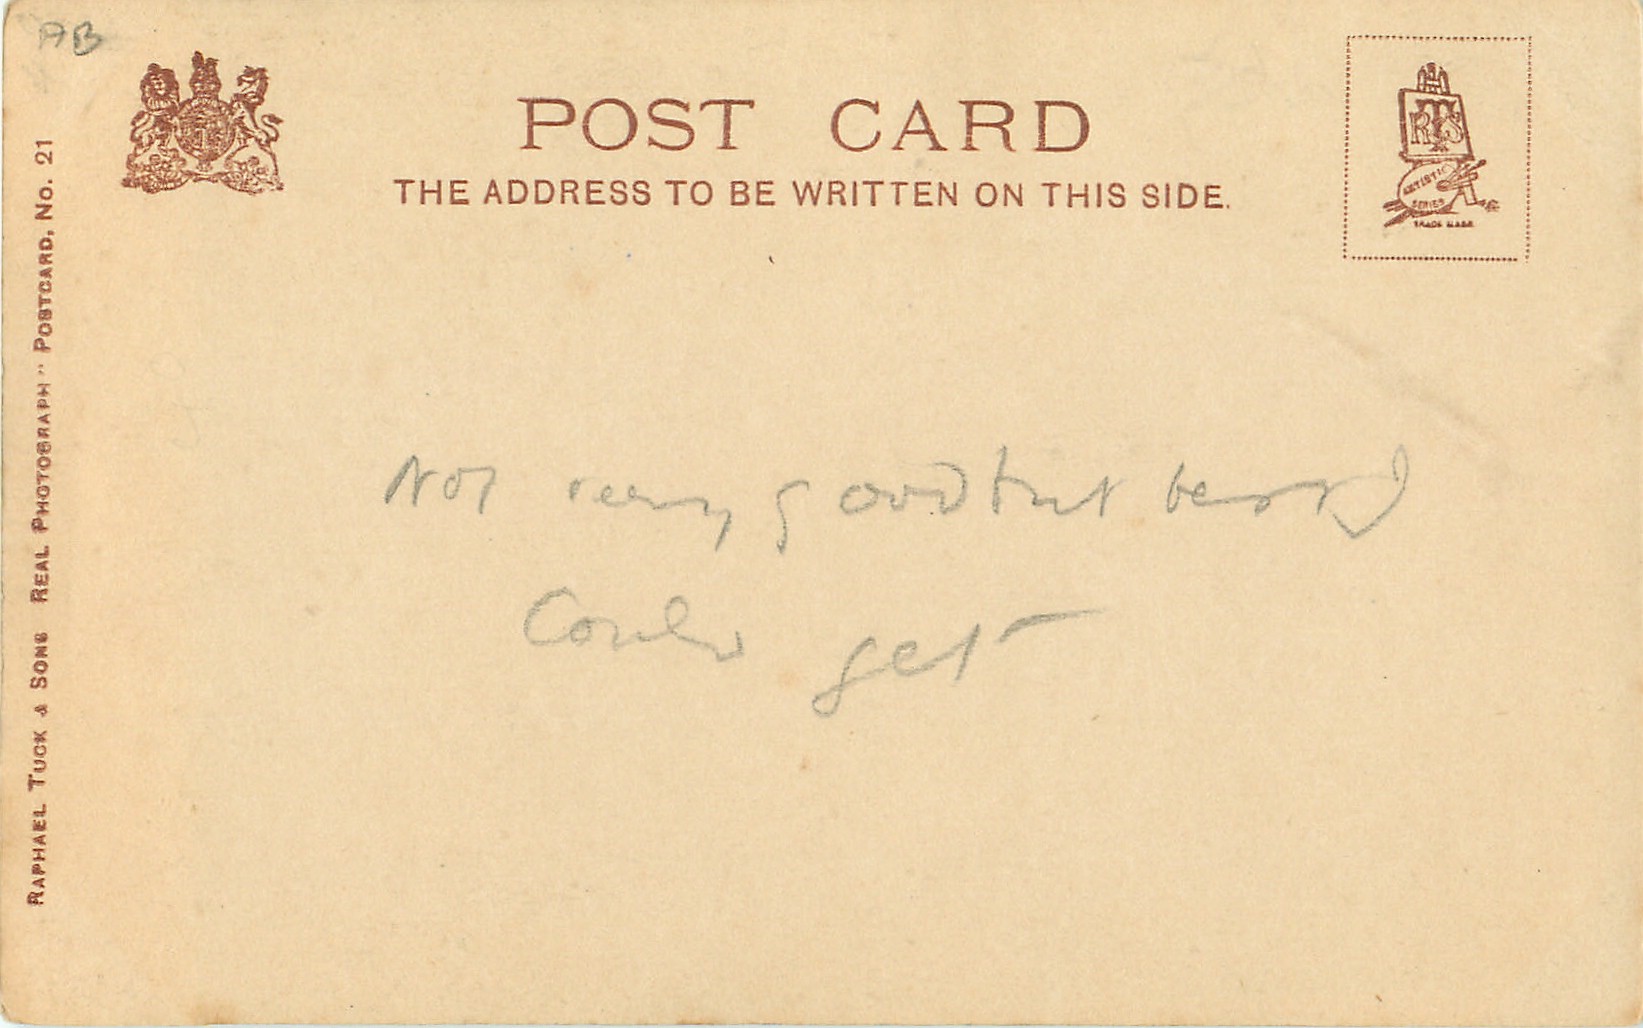 AB
POST CARD
THE ADDRESS TO BE WRITTEN ON THIS SIDE.
RTS
ARTISTIC
SERIES
TRADE MARK
RAPHAEL TUCK & SONS REAL PHOTOGRAPH " POSTCARD, No. 21
Not very good but best I
Could get